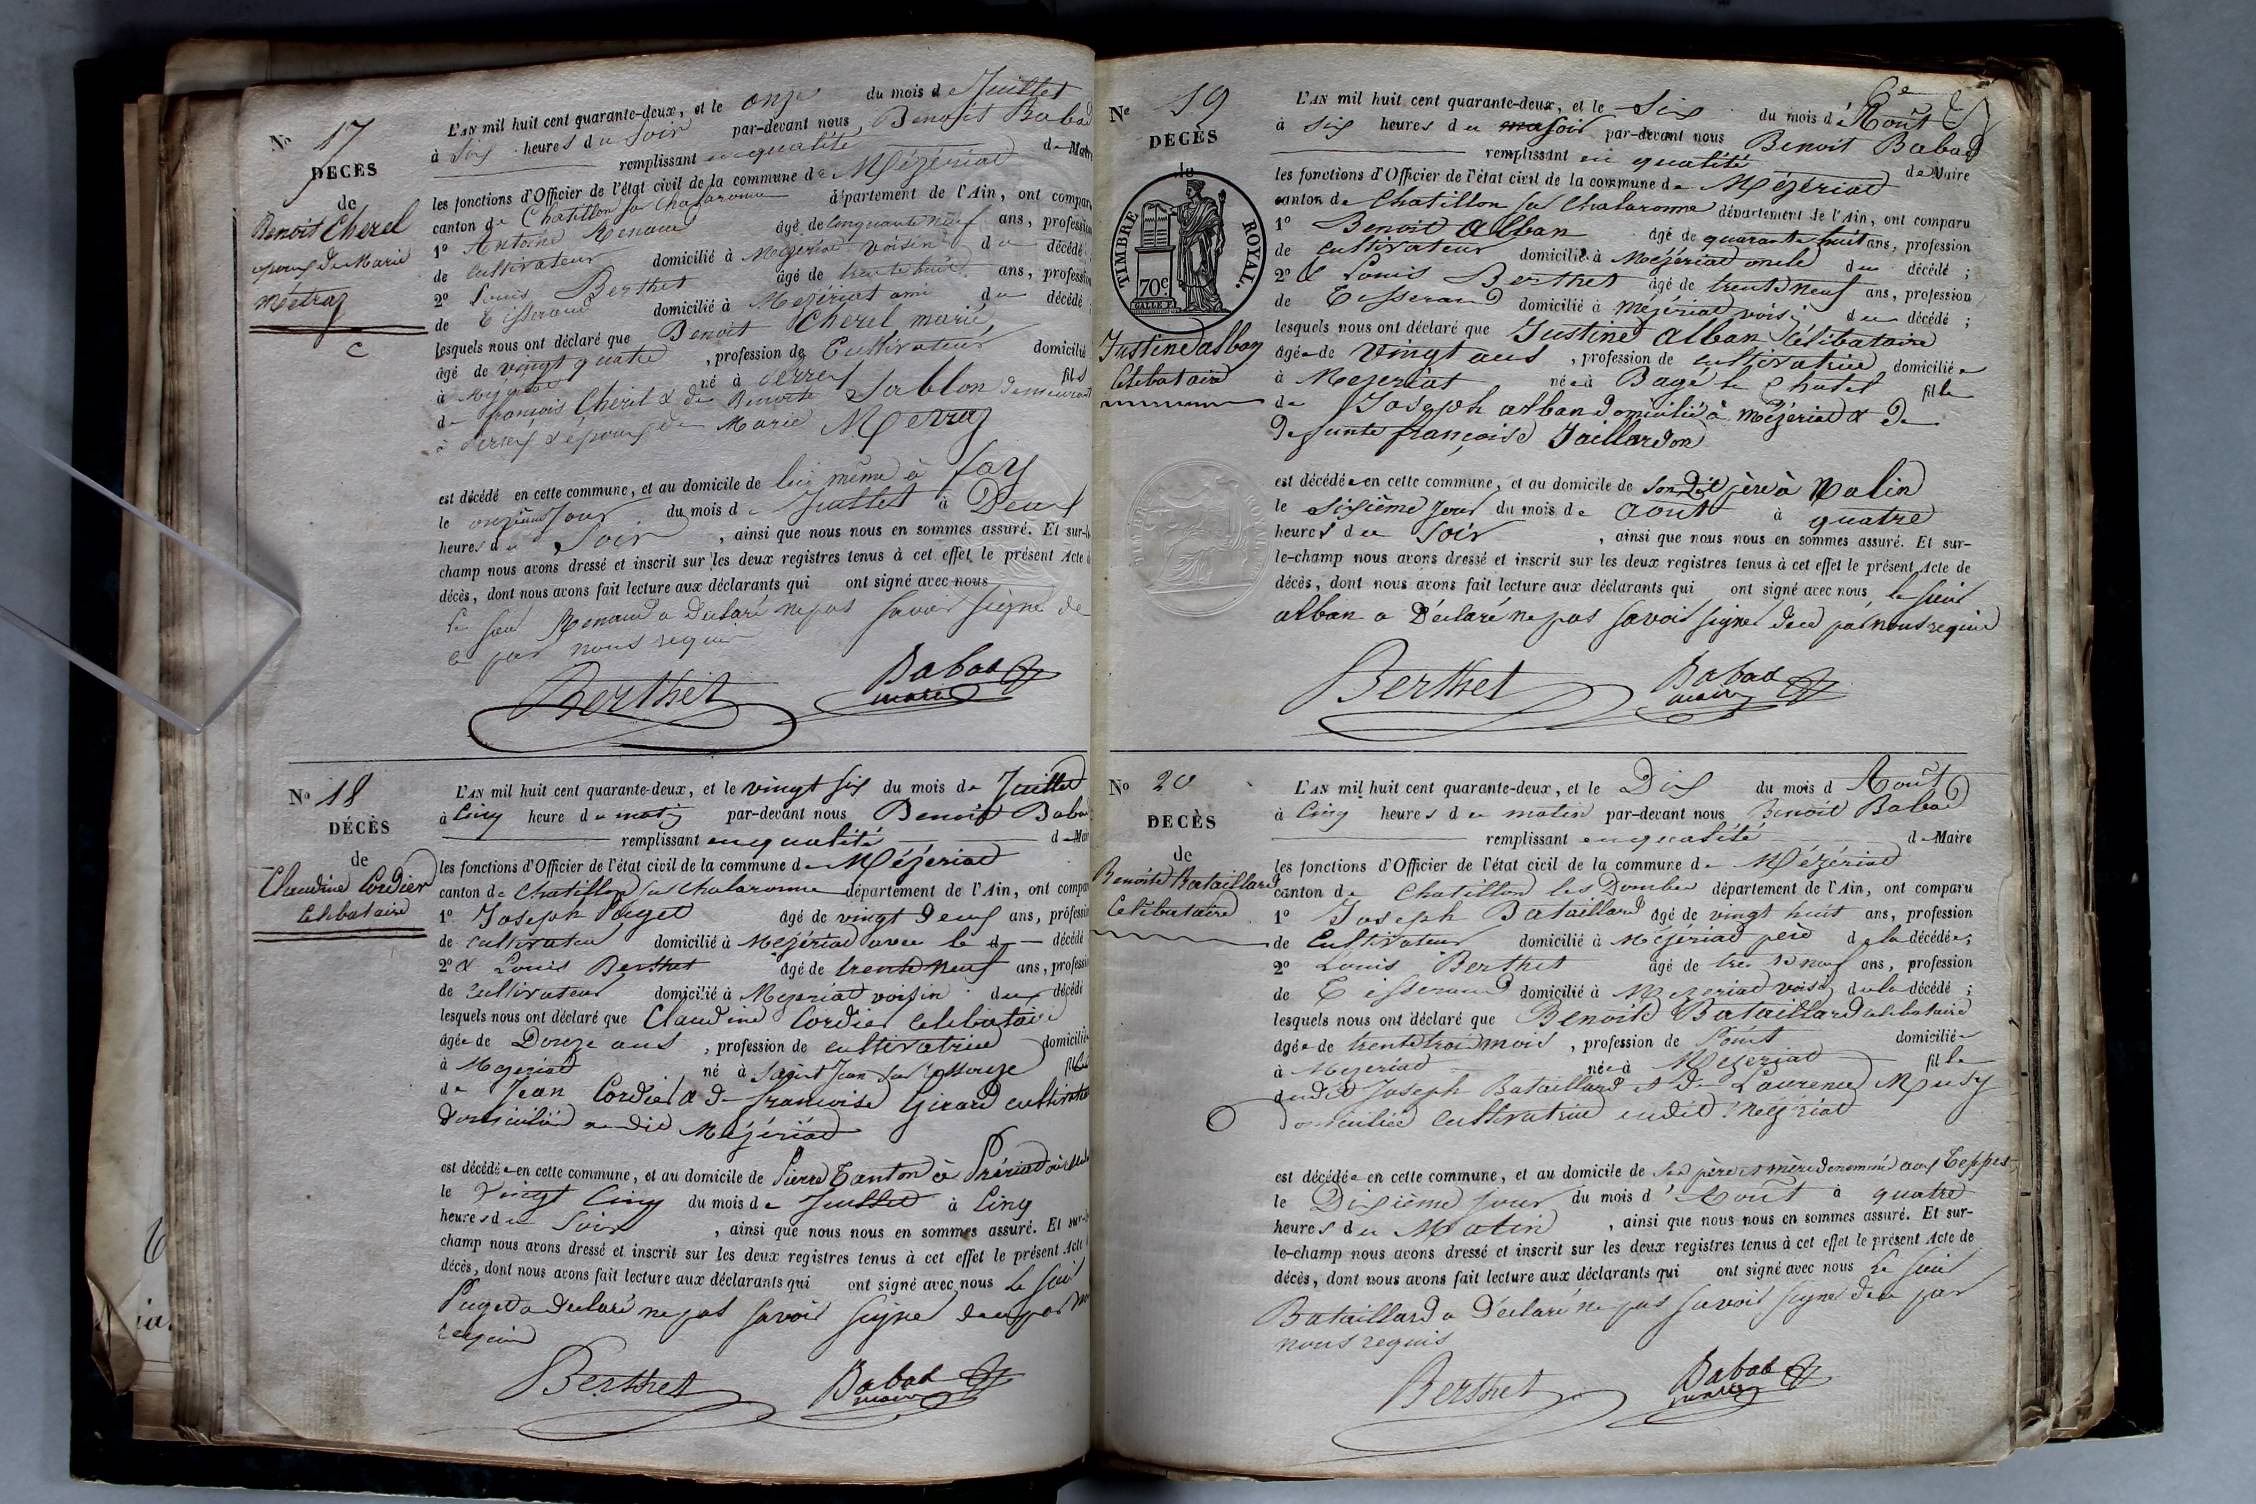 No 17
DECÈS
de
Benoit Cherel
epoux de Marie
Métraz
C
L'AN mil huit cent quarante-deux, et le onze du mois de Juillet
à six heures du soir par-devant nous Benoit Babad
remplissant en qualité de Maire
les fonctions d'Officier de l'état civil de la commune de Mézériat
canton de Chatillon sur Chalaronne département de l'Ain, ont comparu
1º Antoine Renaud âgé de cinquante neuf ans, profession
de cultivateur domicilié à Mézériat voisin du décédé
2º Louis Berthet âgé de trente huit ans, profession
de Tisserand domicilié à Mézériat ami du décédé
lesquels nous ont déclaré que Benoit Cherel marié
âgé de vingt quatre, profession de Cultivateur domicilié
à Mézériat né à Perrex fils
de françois Cherel & de Benoite Sablon demeurant
à Perrex & époux de Marie Metraz
est décédé en cette commune, et au domicile de lui même à fay
le onzième jour du mois de Juillet à Deux
heures du Soir, ainsi que nous nous en sommes assuré. Et sur-le-
champ nous avons dressé et inscrit sur les deux registres tenus à cet effet le présent Acte de
décès, dont nous avons fait lecture aux déclarants qui ont signé avec nous
Le sieur Renaud a Déclaré ne pas savoir signé de
ce par nous requis
Berthet Babad
maire
No 18
DÉCÈS
de
Claudine Cordier
Celibataire
L'AN mil huit cent quarante-deux, et le vingt six du mois de Juillet
à Cinq heure du matin par-devant nous Benoit Babad
remplissant en qualité de Maire
les fonctions d'Officier de l'état civil de la commune de Mézériat
canton de Chatillon sur Chalaronne département de l'Ain, ont comparu
1º Joseph Puget âgé de vingt Deux ans, profession
de cultivateur domicilié à Mézériat décédé
2º & Louis Berthet âgé de trente neuf ans, profession
de cultivateur domicilié à Mezeriat voisin du décédé
lesquels nous ont déclaré que Claudine Cordier Celibataire
âgée de Douze ans, profession de cultivatrice domiciliée
à Mezeriat né à Saint Jean sur Reyssouze fille
de Jean Cordier & de francoise Girard cultivateurs
Domiciliés au dit Mézériat
est décédée en cette commune, et au domicile de Pierre Tanton à Prériat
le Vingt Cinq du mois de Juillet à Cinq
heures du Soir, ainsi que nous nous en sommes assuré. Et sur-le-
champ nous avons dressé et inscrit sur les deux registres tenus à cet effet le présent Acte
décès, dont nous avons fait lecture aux déclarants qui ont signé avec nous Le sieur
Puget a declaré ne pas savoir signé de ce par nous
requis
Berthet Babad
maire
Ne 19
DÉCÈS
de
TIMBRE ROYAL.
70c
Justine alban
Celibataire
6e
L'AN mil huit cent quarante-deux, et le Six du mois d'Août
à six heures du soir par-devant nous Benoit Babad
remplissant en qualité de Maire
les fonctions d'Officier de l'état civil de la commune de Mézériat
canton de Chatillon sur Chalaronne département de l'Ain, ont comparu
1º Benoit alban âgé de quarante huit ans, profession
de cultivateur domicilié à Mézériat oncle du décédé ;
2º & Louis Berthet âgé de trente neuf ans, profession
de Tisserand domicilié à Mézériat voisin du décédé ;
lesquels nous ont déclaré que Justine alban Célibataire
âgée de Vingt ans, profession de cultivatrice domiciliée
à Mezeriat née à Bagé le Chatel fille
de Joseph alban Domicilié à Mézériat & de
Defunte françoise Jaillardon
est décédée en cette commune, et au domicile de son dit père à Malin
le Sixième jour du mois de Aout à quatre
heures du Soir, ainsi que nous nous en sommes assuré. Et sur-
le-champ nous avons dressé et inscrit sur les deux registres tenus à cet effet le présent Acte de
décès, dont nous avons fait lecture aux déclarants qui ont signé avec nous le sieur
alban a Déclaré ne pas savoir signé de ce par nous requis
Berthet Babad
maire
No 20
DECÈS
de
Benoite Bataillard
Celibataire
L'AN mil huit cent quarante-deux, et le Dix du mois d'Août
à Cinq heures du matin par-devant nous Benoit Babad
remplissant en qualité de Maire
les fonctions d'Officier de l'état civil de la commune de Mézériat
canton de Chatillon les Dombes département de l'Ain, ont comparu
1º Joseph Bataillard âgé de vingt huit ans, profession
de Cultivateur domicilié à Mézériat père de la décédée ;
2º Louis Berthet âgé de trente neuf ans, profession
de Tisserand domicilié à Mezeriat voisin de la décédé ;
lesquels nous ont déclaré que Benoite Bataillard celibataire
âgée de trente trois mois, profession de Point domiciliée
à Mezeriat née à Mezeriat fille
dudit Joseph Bataillard & de Laurence Musy
Domiciliée cultivatrice audit Mézériat
est décédée en cette commune, et au domicile de ses père et mère denommés aux Teppes
le Dixième jour du mois d'Août à quatre
heures du Matin, ainsi que nous nous en sommes assuré. Et sur-
le-champ nous avons dressé et inscrit sur les deux registres tenus à cet effet le présent Acte de
décès, dont nous avons fait lecture aux déclarants qui ont signé avec nous Le sieur
Bataillard a Déclaré ne pas savoir signé de ce par
nous requis
Berthet Babad
maire